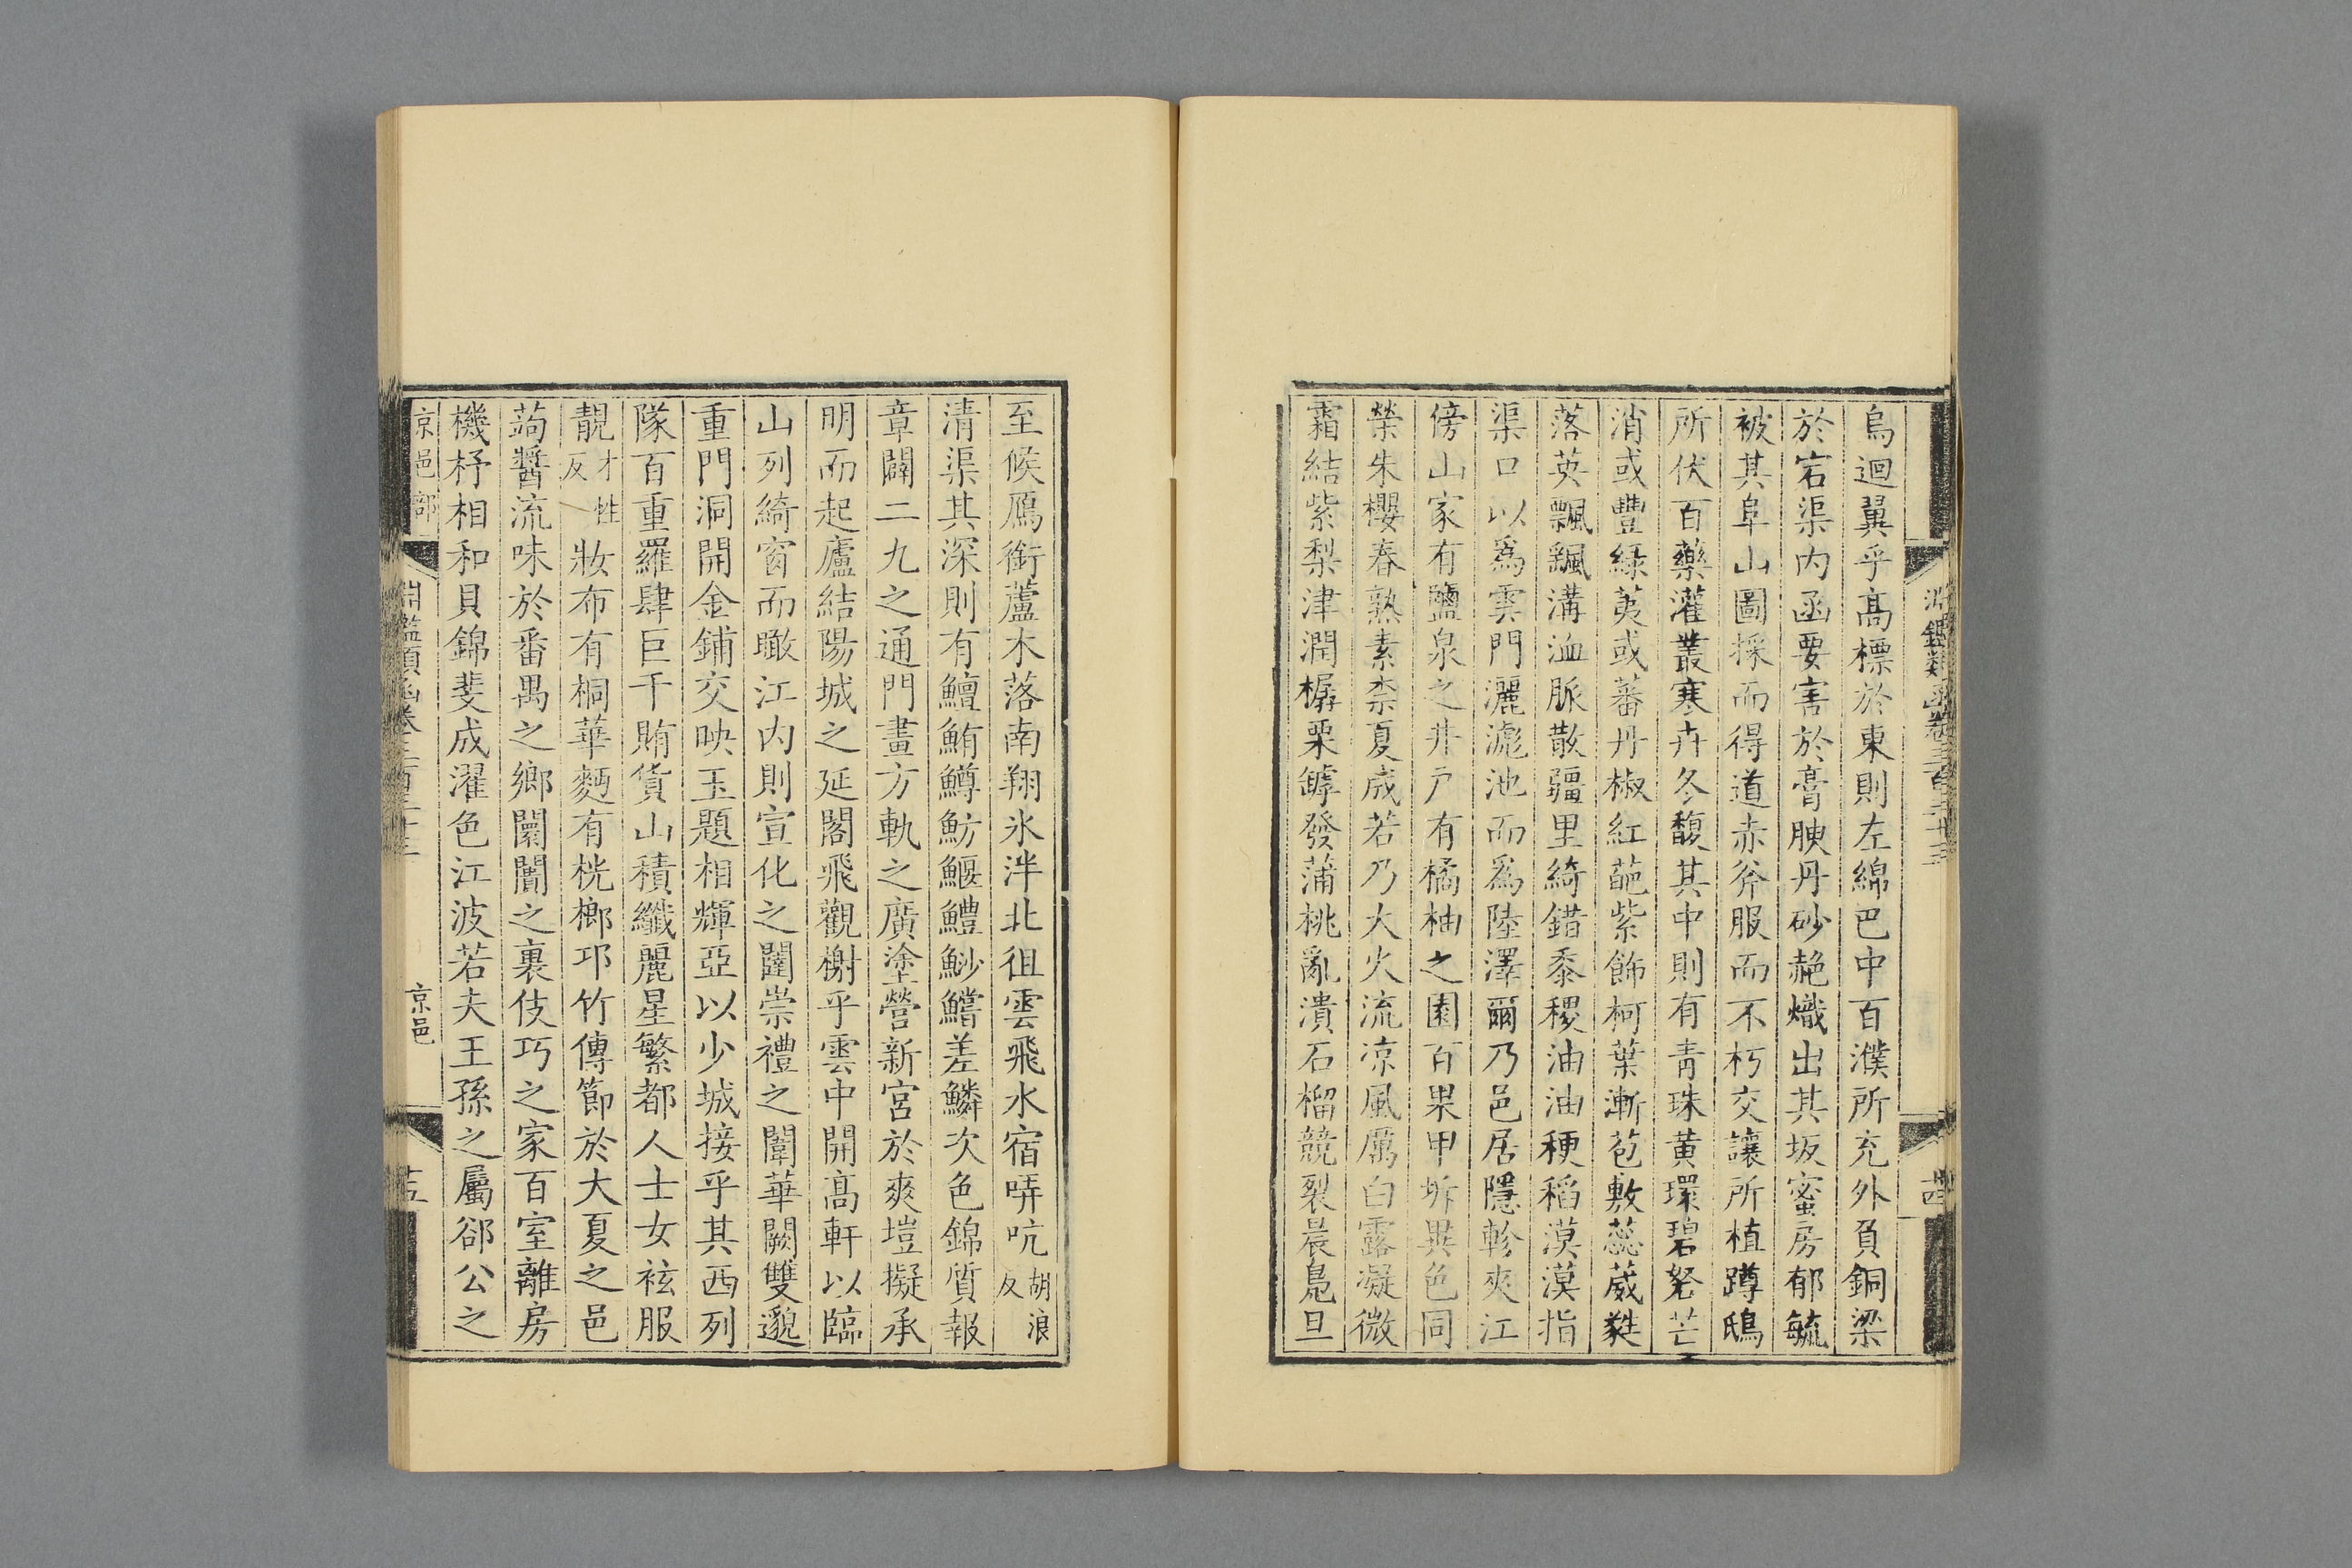 烏迴翼乎髙標於東則左綿巴中百濮所充外負銅梁
於宕渠内函要害於膏腴丹砂赩熾出其坂蜜房郁毓
被其阜山圖採而得道赤斧服而不朽交讓所植蹲鴟
所伏百藥灌叢寒卉冬馥其中則有青珠黄環碧砮芒
消或豐緑荑或蕃丹椒紅葩紫飾柯葉漸苞敷蕊葳蕤
落英飄颻溝洫脈散疆里綺錯黍稷油油稉稻漠漠指
渠口以爲雲門灑滮池而爲陸澤爾乃邑居隱軫夾江
傍山家有鹽泉之井戸有橘柚之園百果甲坼異色同
榮朱櫻春熟素柰夏成若乃大火流凉風厲白露凝微
霜結紫梨津潤樼栗罅發蒲桃亂潰石榴競裂晨鳬旦
淵鑑類函卷三百三十三
十四
至候鴈銜蘆木落南翔氷泮北徂雲飛水宿哢吭胡浪反
清渠其深則有鱣鮪鱒魴鰋鱧魦鱨差鱗次色錦質報
章闢二九之通門畫方軌之廣塗營新宫於爽塏擬承
明而起廬結陽城之延閣飛觀榭乎雲中開髙軒以臨
山列綺窗而瞰江内則宣化之闥崇禮之闈華闕雙邈
重門洞開金鋪交映玉題相輝亞以少城接乎其西列
隊百重羅肆巨千賄貨山積纖麗星繁都人士女袨服
靚才甠反妝布有橦華麪有桄榔邛竹傳節於大夏之邑
蒟醬流味於番禺之鄉闤闠之裏伎巧之家百室離房
機杼相和貝錦斐成濯色江波若夫王孫之屬郤公之
京邑部
淵鑑類函卷三百三十三
京邑
十五